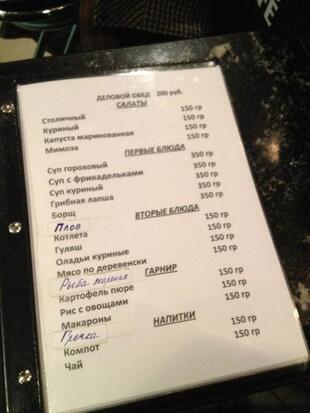 ДЕЛОВОЙ ОБЕД 200 руб.
САЛАТЫ
Столичный 150 гр
Куриный 150 гр
Капуста маринованная 150 гр
Мимоза 150 гр
ПЕРВЫЕ БЛЮДА
Суп гороховый 350 гр
Суп с фрикадельками 350 гр
Суп куриный 350 гр
Грибная лапша 350 гр
Борщ 350 гр
ВТОРЫЕ БЛЮДА
Плов
Котлета 150 гр
Гуляш 150 гр
Оладьи куриные 150 гр
Мясо по деревенски 150 гр
ГАРНИР
Рыба жареная
Картофель пюре 150 гр
Рис с овощами 150 гр
Макароны 150 гр
НАПИТКИ
Гречка
Компот 150 гр
Чай 150 гр